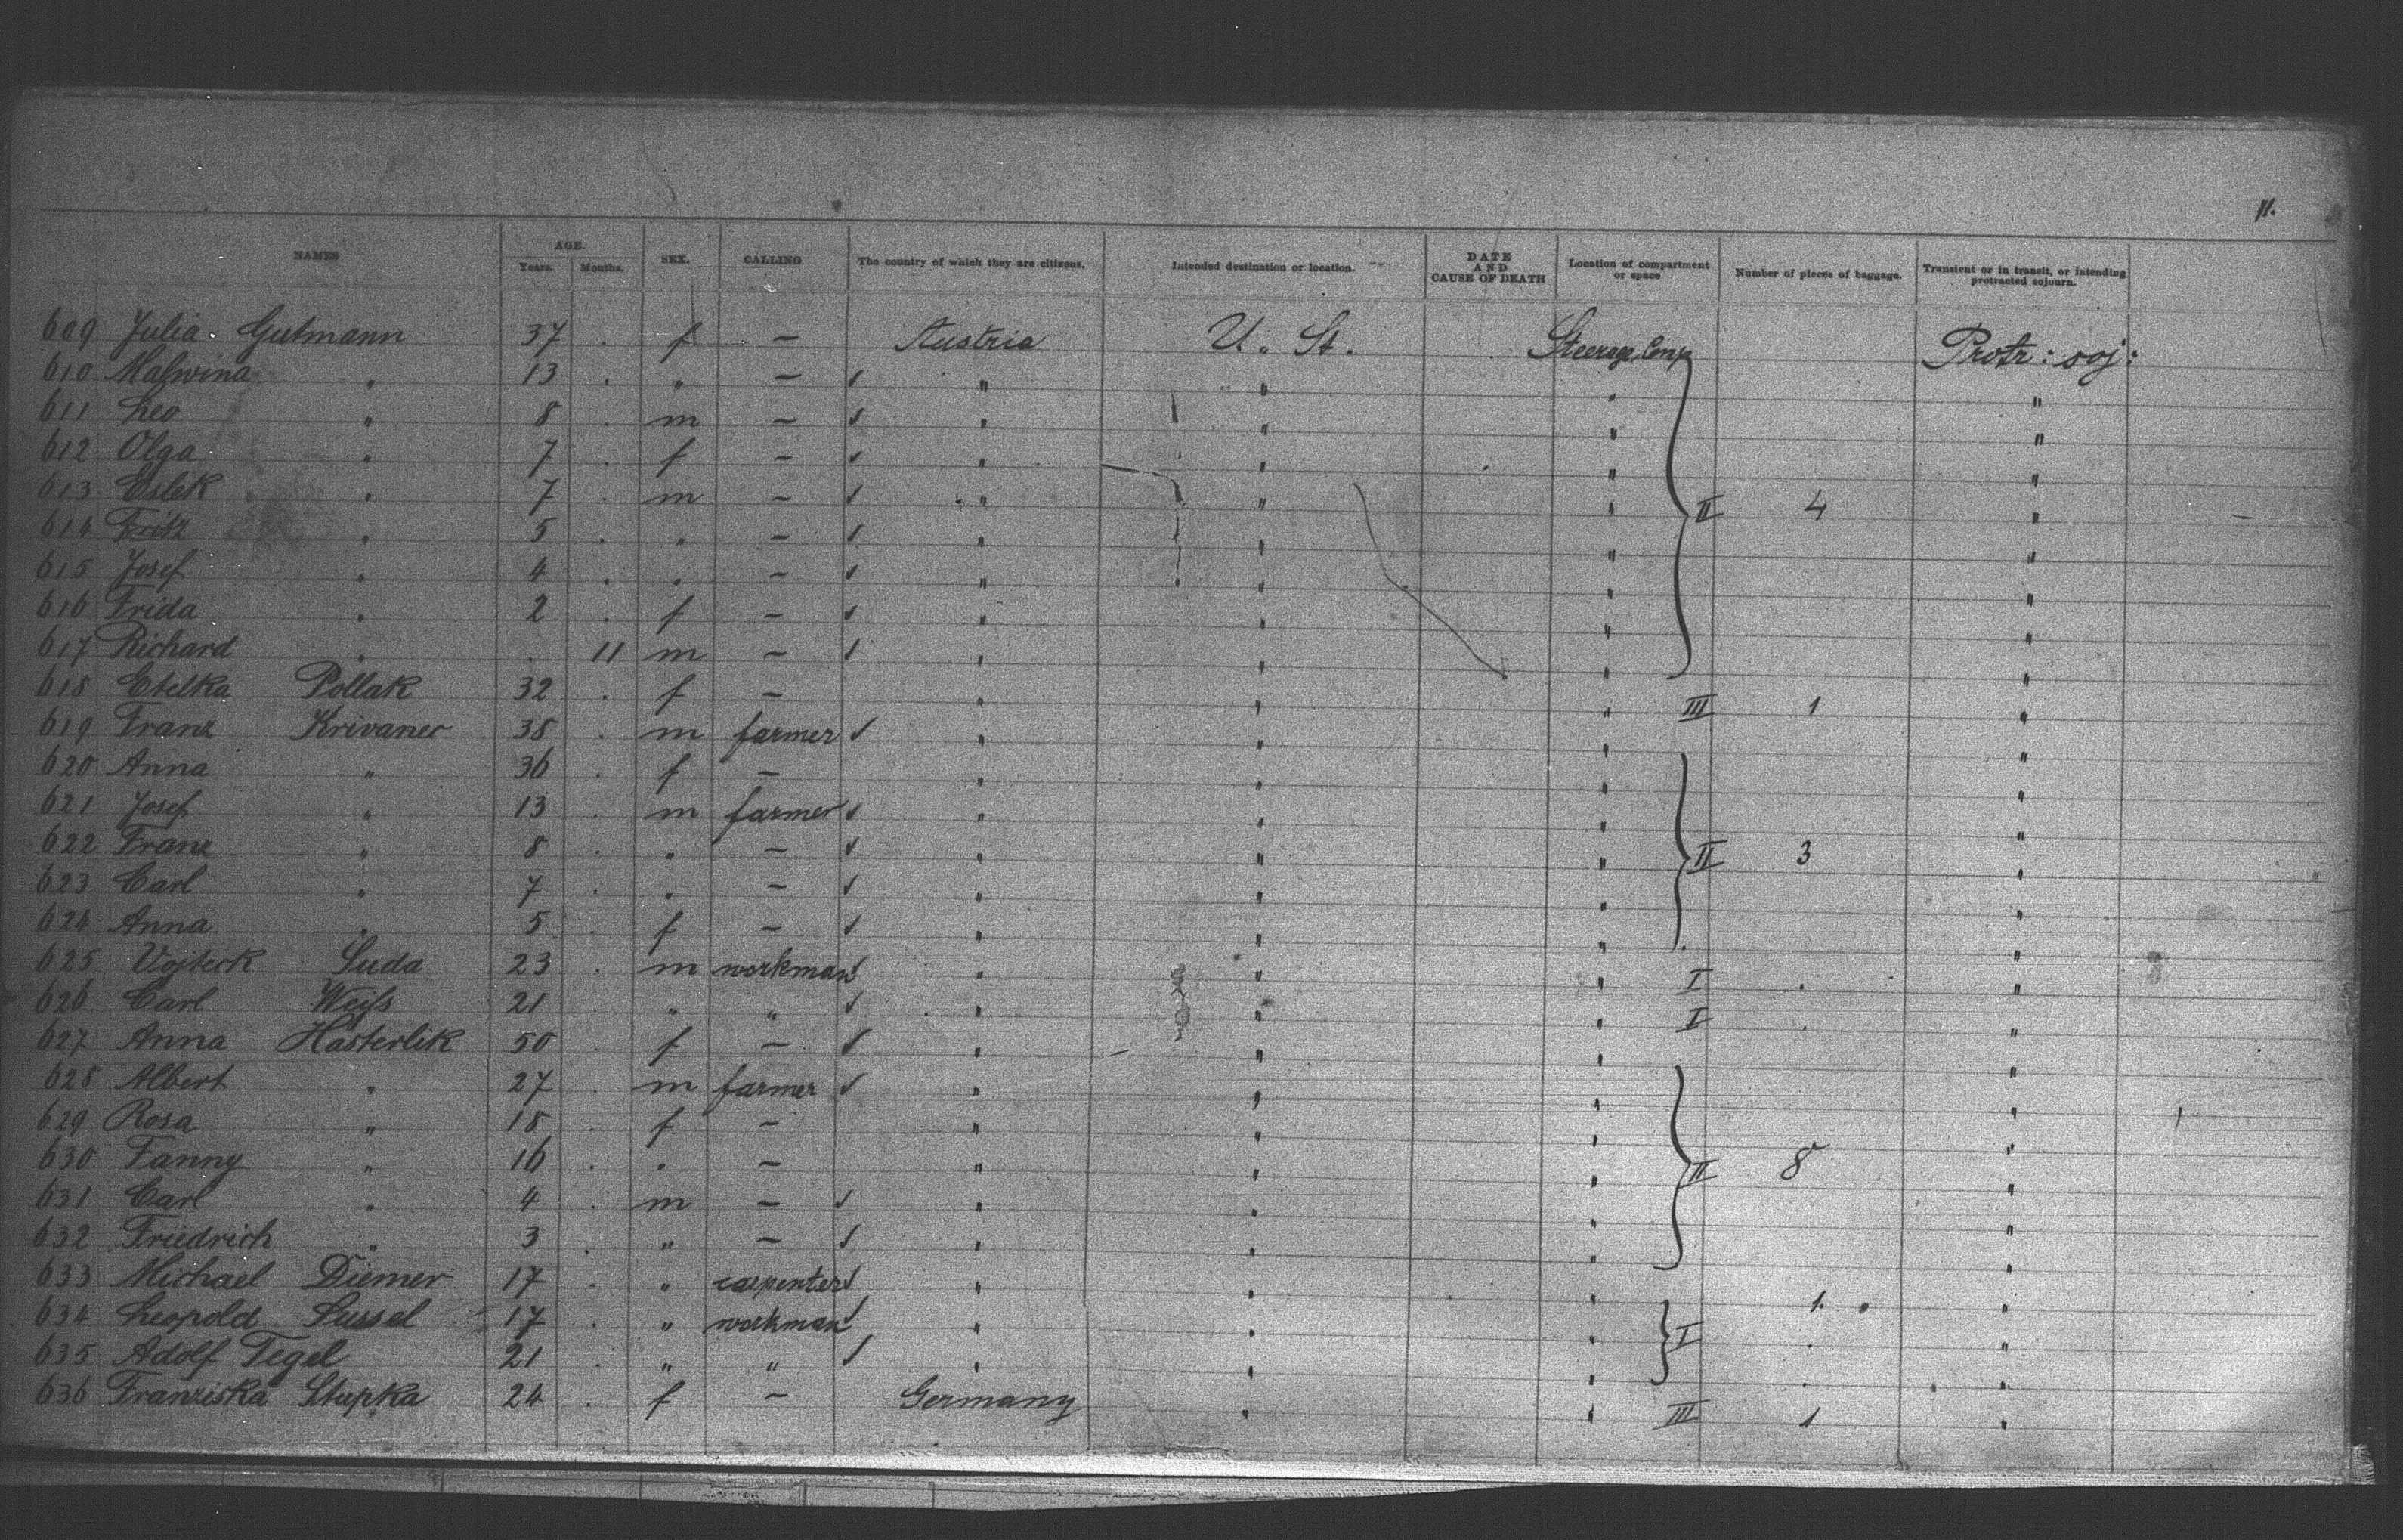 11.
NAMES AGE. Years. Months. SEX. CALLING The country of which they are citizens. Intended destination or location. DATE AND CAUSE OF DEATH Location of compartment or space Number of pieces of baggage. Transient or in transit, or intending protracted sojourn.
609 Julia Gutmann 37 . f — Austria U. St. Steerage Comp Protr: soj:
610 Malwina " 13 . " — " " " "
611 Leo " 8 . m — " " " "
612 Olga " 7 . f — " " " "
613 Eslek " 7 . m — " " " II 4 "
614 Fritz " 5 . " — " " " "
615 Josef " 4 . " — " " " "
616 Frida " 2 . f — " " " "
617 Richard " . 11 m — " " " "
618 Etelka Pollak 32 . f — " " " III 1 "
619 Franz Krivaner 38 . m farmer " " " "
620 Anna " 36 . f — " " " "
621 Josef " 13 . m farmer " " " "
622 Franz " 8 . " — " " " II 3 "
623 Carl " 7 . " — " " " "
624 Anna " 5 . f — " " " "
625 Vojteck Suda 23 . m workman " " " I . "
626 Carl Weiß 21 . " " " " " I . "
627 Anna Hasterlik 50 . f — " " " "
628 Albert " 27 . m farmer " " " "
629 Rosa " 18 . f — " " " "
630 Fanny " 16 . " — " " " II 8 "
631 Carl " 4 . m — " " " "
632 Friedrich " 3 . " — " " " "
633 Michael Diemer 17 . " carpenter " " " 1. "
634 Leopold Sussel 17 . " workman " " " I . "
635 Adolf Tegel 21 . " " " " " . "
636 Franziska Stupka 24 . f — Germany " " III 1 "